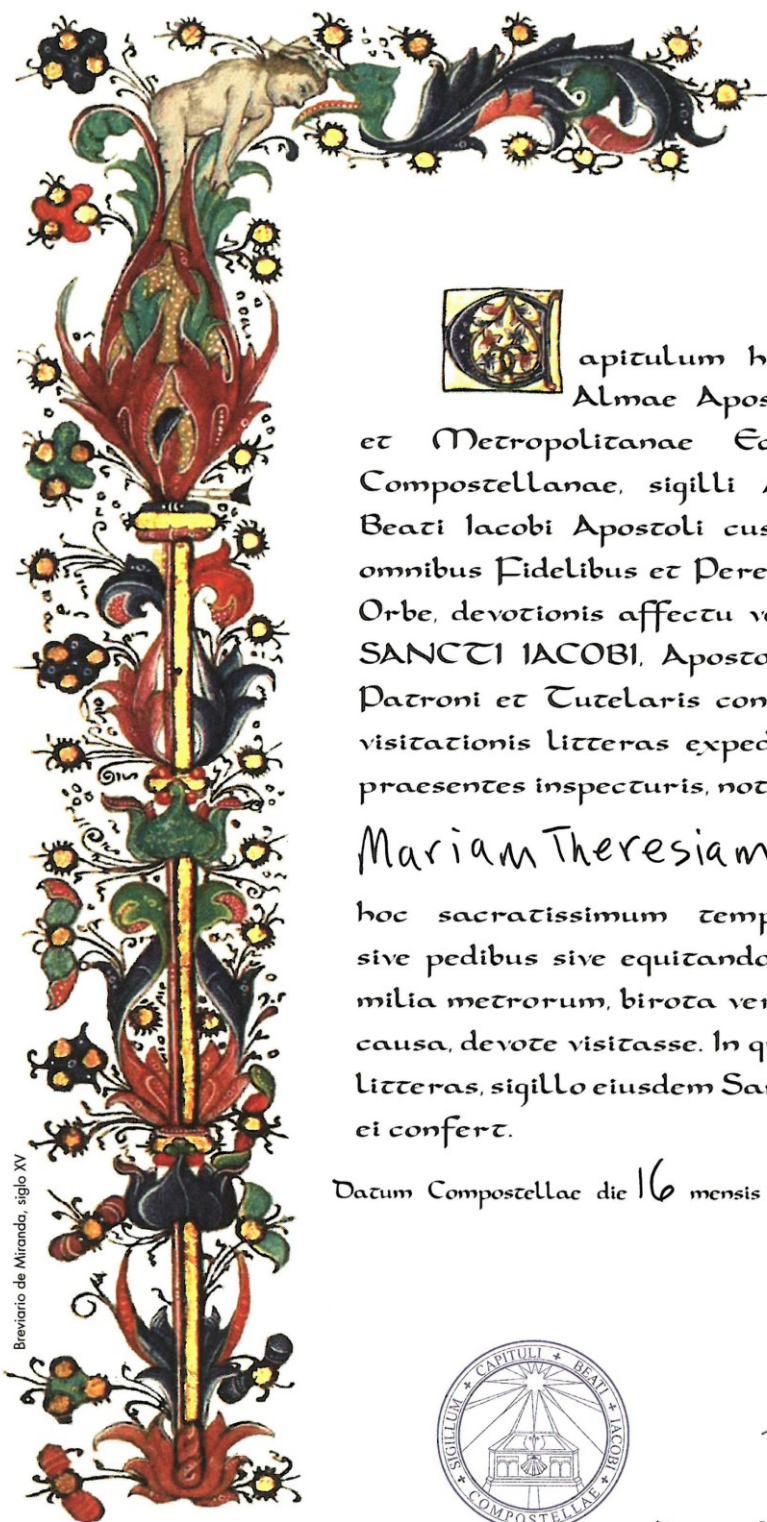 Capitulum h
Almae Apos
et Metropolitanae Ec
Compostellanae, sigilli A
Beati Iacobi Apostoli cus
omnibus Fidelibus et Pere
Orbe, devotionis affectu ve
SANCTI IACOBI, Aposto
Patroni et Tutelaris con
visitationis litteras exped
praesentes inspecturis, not
Mariam Theresiam
hoc sacratissimum temp
sive pedibus sive equitando
milia metrorum, birota ver
causa, devote visitasse. In qu
litteras, sigillo eiusdem San
ei confert.
Datum Compostellae die 16 mensis
Breviario de Miranda, siglo XV
SIGILLUM + CAPITULI + BEATI + IACOBI + COMPOSTELLAE +